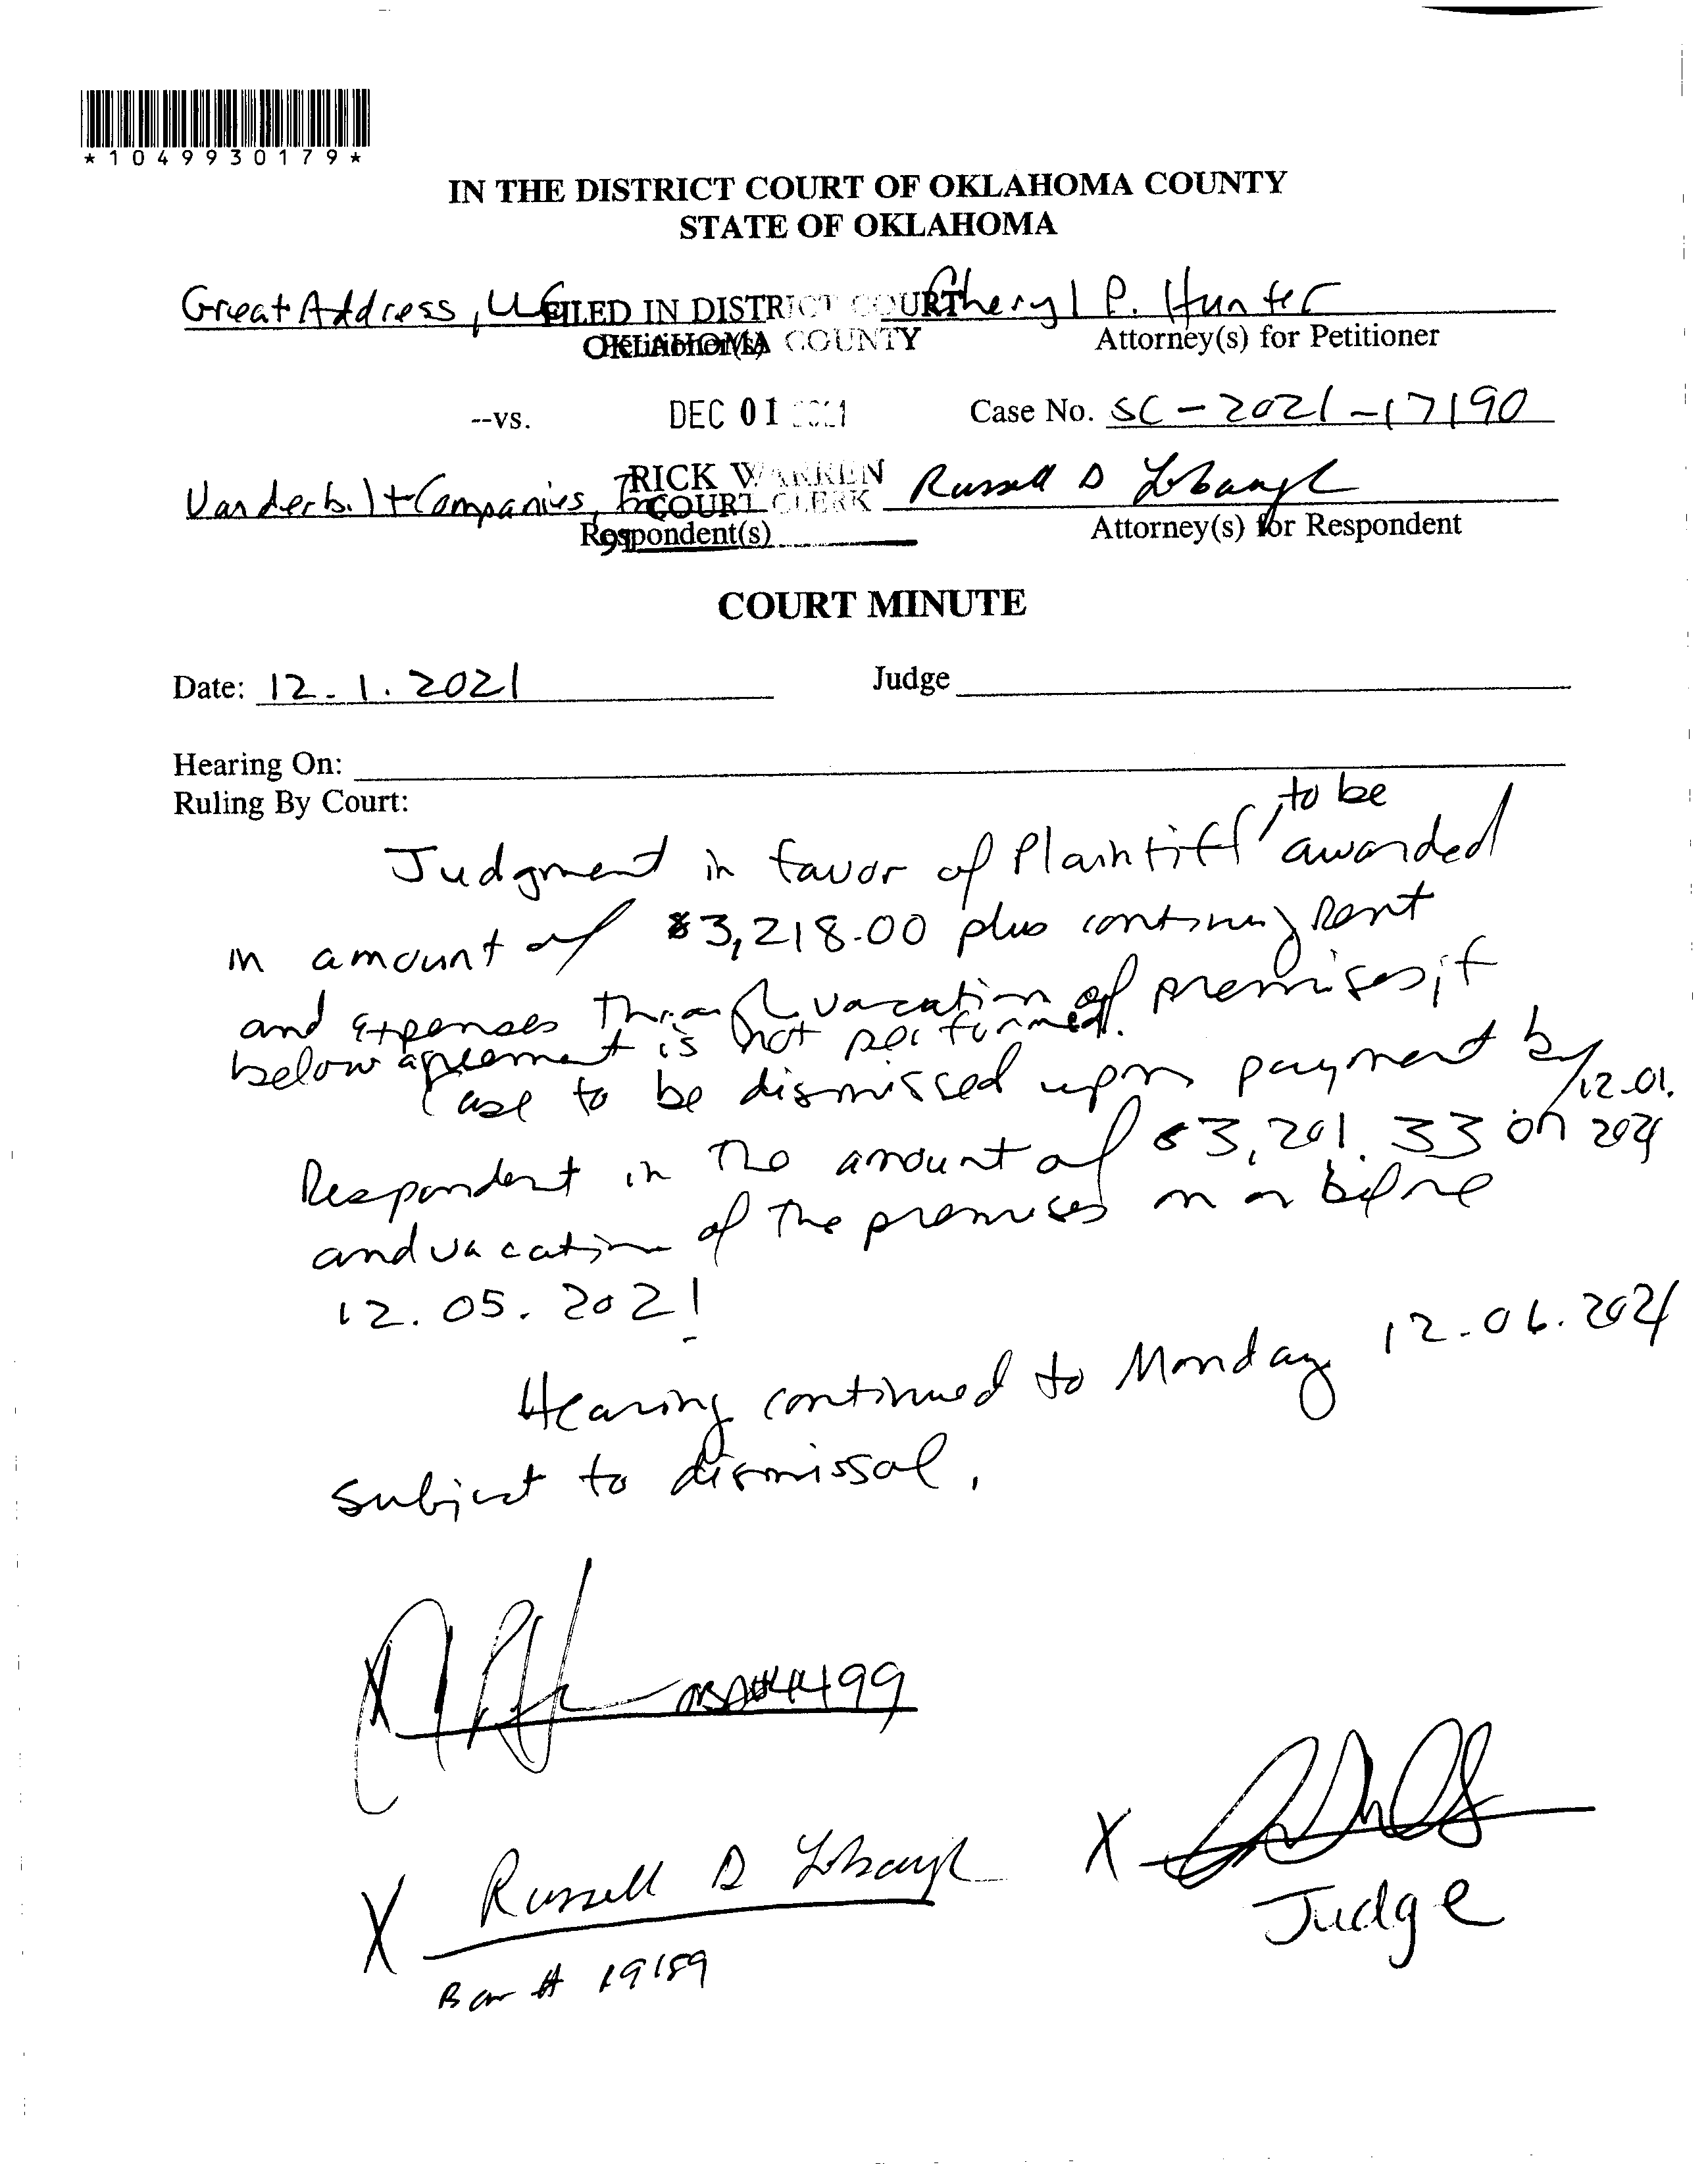 *1049930179*
IN THE DISTRICT COURT OF OKLAHOMA COUNTY
STATE OF OKLAHOMA
Great Address, LLC
Cheryl P. Hunter
FILED IN DISTRICT COURT
OKLAHOMA COUNTY
Petitioner(s)
Attorney(s) for Petitioner
--vs.
DEC 01 2021
Case No. SC-2021-17190
RICK WARREN
COURT CLERK
Vanderbilt Companies, Inc
Russell D Lobaugh
Respondent(s)
Attorney(s) for Respondent
COURT MINUTE
Date: 12.1.2021
Judge
Hearing On:
Ruling By Court:
to be
Judgment in favor of Plaintiff, awarded
in amount of $3,218.00 plus continuing Rent
and expenses through vacation of premises, if
below agreement is not performed.
Case to be dismissed upon payment by
Respondent in the amount of $3,201.33 on 12.01.2021
and vacation of the premises on or before
12.05.2021
Hearing continued to Monday 12.06.2021
subject to dismissal.
X OBA#4499
X Russell D Lobaugh
Bar # 19159
X
Judge